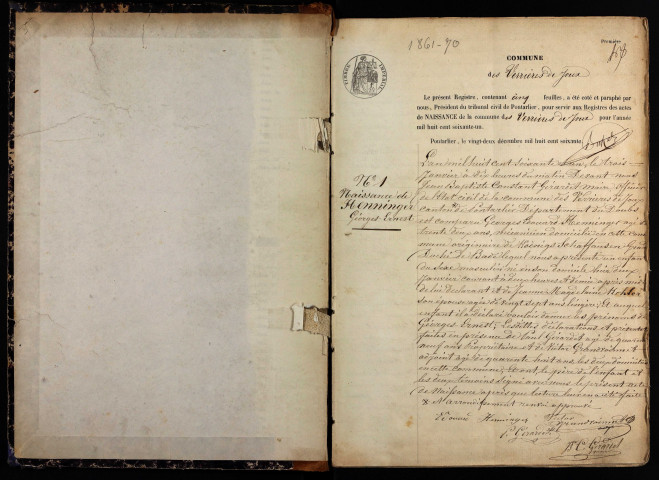 1861-70
Première
COMMUNE
des Verrières de Joux
TIMBRE IMPERIAL
Le présent Registre, contenant cinq feuilles, a été coté et paraphé par
nous, Président du tribunal civil de Pontarlier, pour servir aux Registres des actes
de NAISSANCE de la commune des Verrières de Joux pour l'année
mil huit cent soixante-un.
Pontarlier, le vingt-deux décembre mil huit cent soixante.
N° 1
Naissance de
Henninger
Georges Ernest
L'an mil huit cent soixante un, le trois
Janvier à dix heures du matin Devant nous
Jean Baptiste Constant Girardet maire officier
de l'état civil de la commune des Verrières de Joux
canton de Pontarlier Département du Doubs
est comparu Georges Edouard Henninger agé de
trente deux ans, mécanicien domicilié en cette com
mune originaire de Koenigs Schaffhausen Grand
Duché de Bade lequel nous a présenté un enfant
du sexe masculin né en son domicile hier deux
Janvier courant à deux heures et demie après midi
de lui déclarant et de Jeanne Magdelaine
son épouse agée de vingt sept ans lingère, Et auquel
enfant il a déclaré vouloir donner les prénoms de
Georges Ernest; Lesdites déclarations et présentation
faites en présence de Paul Girardet agé de quarante
neuf ans propriétaire et de Victor Grandvoinnet
adjoint agé de quarante huit ans les deux domiciliés
en cette commune; et ont, le père de l'enfant et
les deux témoins signé avec nous le présent acte
de Naissance après que lecture leur en a été faite
Edouard Henninger Victor
P. Girardet Grandvoinnet
J.B.C. Girardet